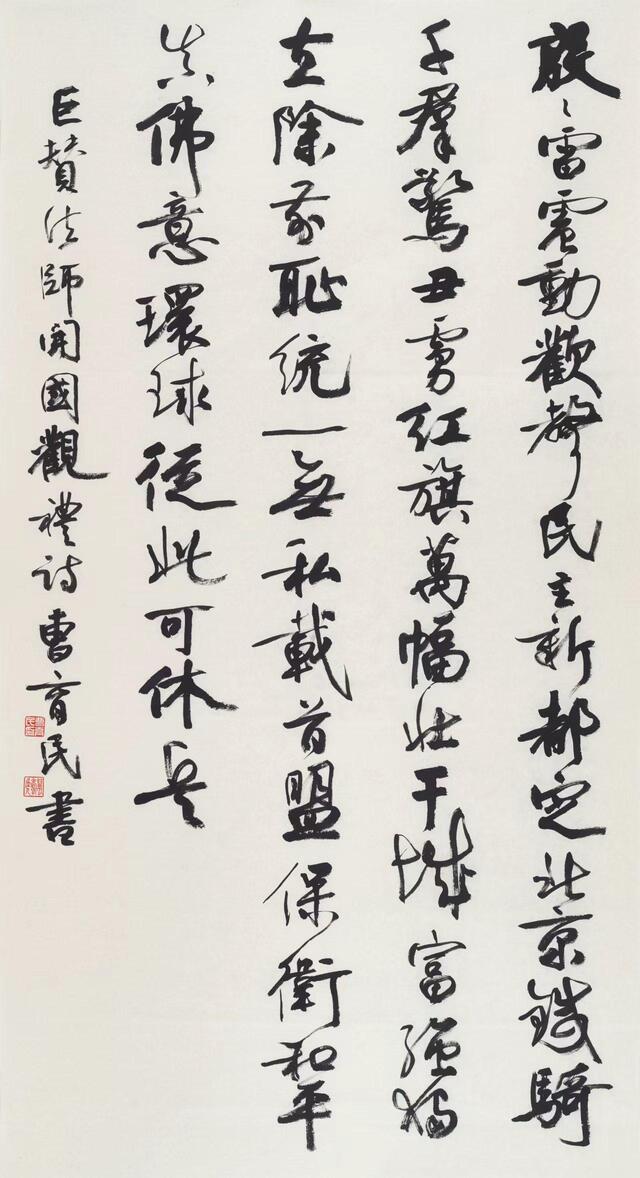 殷〻雷震動歡聲民主新都定北京鐵騎
千羣驚丑虜红旗萬幅壯干城富强獨
立除前耻統一無私載首盟保衛和平
真佛意環球從此可休兵
巨賛法師開國觀禮詩曹育民書